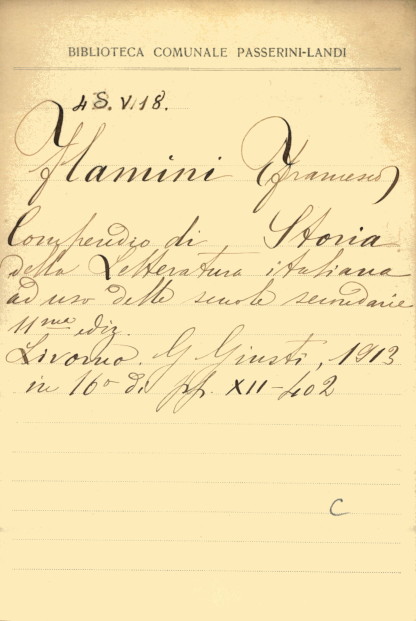 BIBLIOTECA COMUNALE PASSERINI-LANDI
4 S. V. 18.
Flamini (Francesco)
Compendio di Storia
della Letteratura italiana
ad uso delle scuole secondarie
11ma ediz.
Livorno. G Giusti, 1913
in 16o di pp. XII-402
C